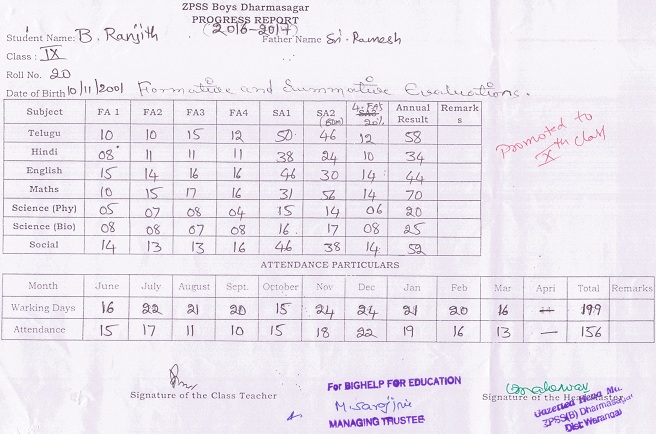 ZPSS Boys Dharmasagar
PROGRESS REPORT
(2016-2017)
Student Name: B. Ranjith Father Name Sri. Ramesh
Class: IX
Roll No. 20
Date of Birth 10/11/2001 Formative and Summative Evaluations.
Subject FA 1 FA2 FA3 FA4 SA1 SA2 4-FA's 20% Annual Result Remarks
Telugu 10 10 15 12 50 46 12 58
Hindi 08 11 11 11 38 24 10 34
English 15 14 16 16 46 30 14 44
Maths 10 15 17 16 31 56 14 70
Science (Phy) 05 07 08 04 15 14 06 20
Science (Bio) 08 08 07 08 16 17 08 25
Social 14 13 13 16 46 38 14 52
Promoted to
Xth class
ATTENDANCE PARTICULARS
Month June July August Sept. October Nov Dec Jan Feb Mar Apri Total Remarks
Working Days 16 22 21 20 15 24 24 21 20 16 — 199
Attendance 15 17 11 10 15 18 22 19 16 13 — 156
Signature of the Class Teacher
For BIGHELP FOR EDUCATION
M. Sarojini
MANAGING TRUSTEE
Signature of the Head Master
Gazetted Head Ma.
ZPSS(B) Dharmasagar
Dist: Warangal